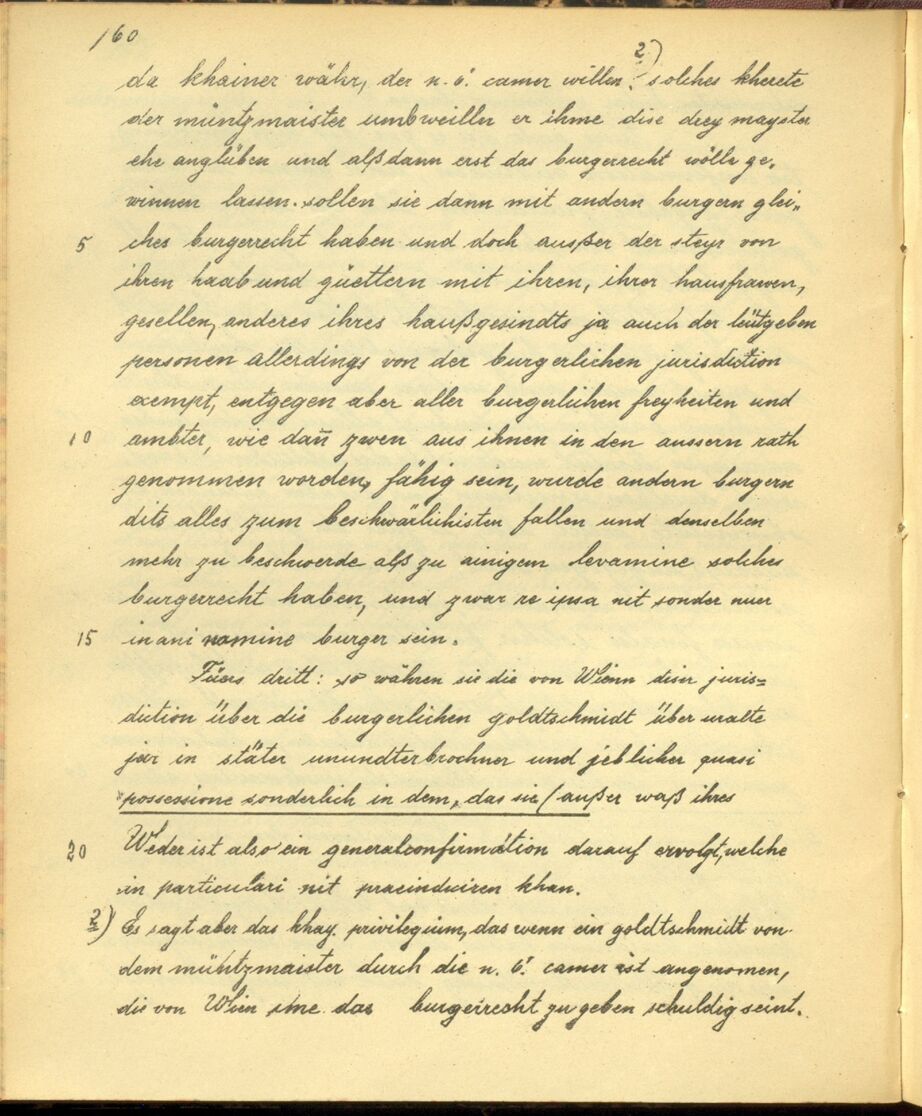 160
da khainer währ, der n. ö. camer willen? 2) solches kherete
der müntzmaister umbweilln er ihme dise drey mayster
ehe anglüben und alßdann erst das burgerrecht wölle ge„
winnen lassen. sollen sie dann mit andern burgern glei„
5 ches burgerrecht haben und doch außer der steyr von
ihren haab und güettern mit ihren, ihrer hausfrawen,
gesellen, anderes ihres haußgesindts ja auch der leütgeben
personen allerdings von der burgerlichen jurisdiction
exempt, entgegen aber aller burgerlichen freyheiten und
10 ambter, wie dan̄ zwen aus ihnen in den aussern rath
genommen worden, fähig sein, wurde andern burgern
dits alles zum beschwärlichisten fallen und denselben
mehr zu beschwerde alß zu ainigem levamine solches
burgerrecht haben, und zwar re ipsa nit sonder nuer
15 inani nomine burger sein.
Füers dritt: so währen sie die von Wienn diser juris=
diction über die burgerlichen goldtschmidt über uralte
jar in stäter unundterbrochner und jeblicher quasi
possessione sonderlich in dem, das sie (außer waß ihres
20 Weder ist also ein generalconfirmation darauf ervolgt, welche
in particulari nit praeindiciren khan.
2) Es sagt aber das khay. privilegium, das wenn ein goldtschmidt von
dem müntzmaister durch die n. ö. camer ist angenomen,
die von Wien ime das burgerrecht zu geben schuldig seint.